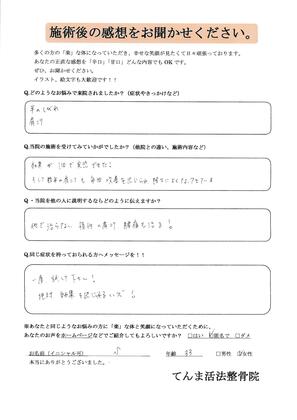 施術後の感想をお聞かせください。
多くの方の「楽」な体になっていただき、幸せな笑顔が見たくて日々頑張っております。
あなたの正直な感想を「辛口」「甘口」どんな内容でもOKです。
ぜひ、お聞かせください。
イラスト、絵文字も大歓迎です！！
Q.どのようなお悩みで来院されましたか？（症状やきっかけなど）
手のしびれ
肩こり
Q.当院の施術を受けてみていかがでしたか？（他院との違い、施術内容など）
効果が1回で実感できた！
Q・当院を他の人に説明するならどのように伝えますか？
他で治らない
腰痛も治る！
Q.同じ症状を持っておられる方へメッセージを！！
一度試して下さい！
絶対効果を
※あなたと同じようなお悩みの方に「楽」な体と笑顔になっていただくために、
あなたのお声をホームページなどでご紹介してもよろしいですか？ □はい □匿名で □ダメ
お名前（イニシャル可） 年齢 33 □男性 □女性
本当にありがとうございました。
てんま活法整骨院